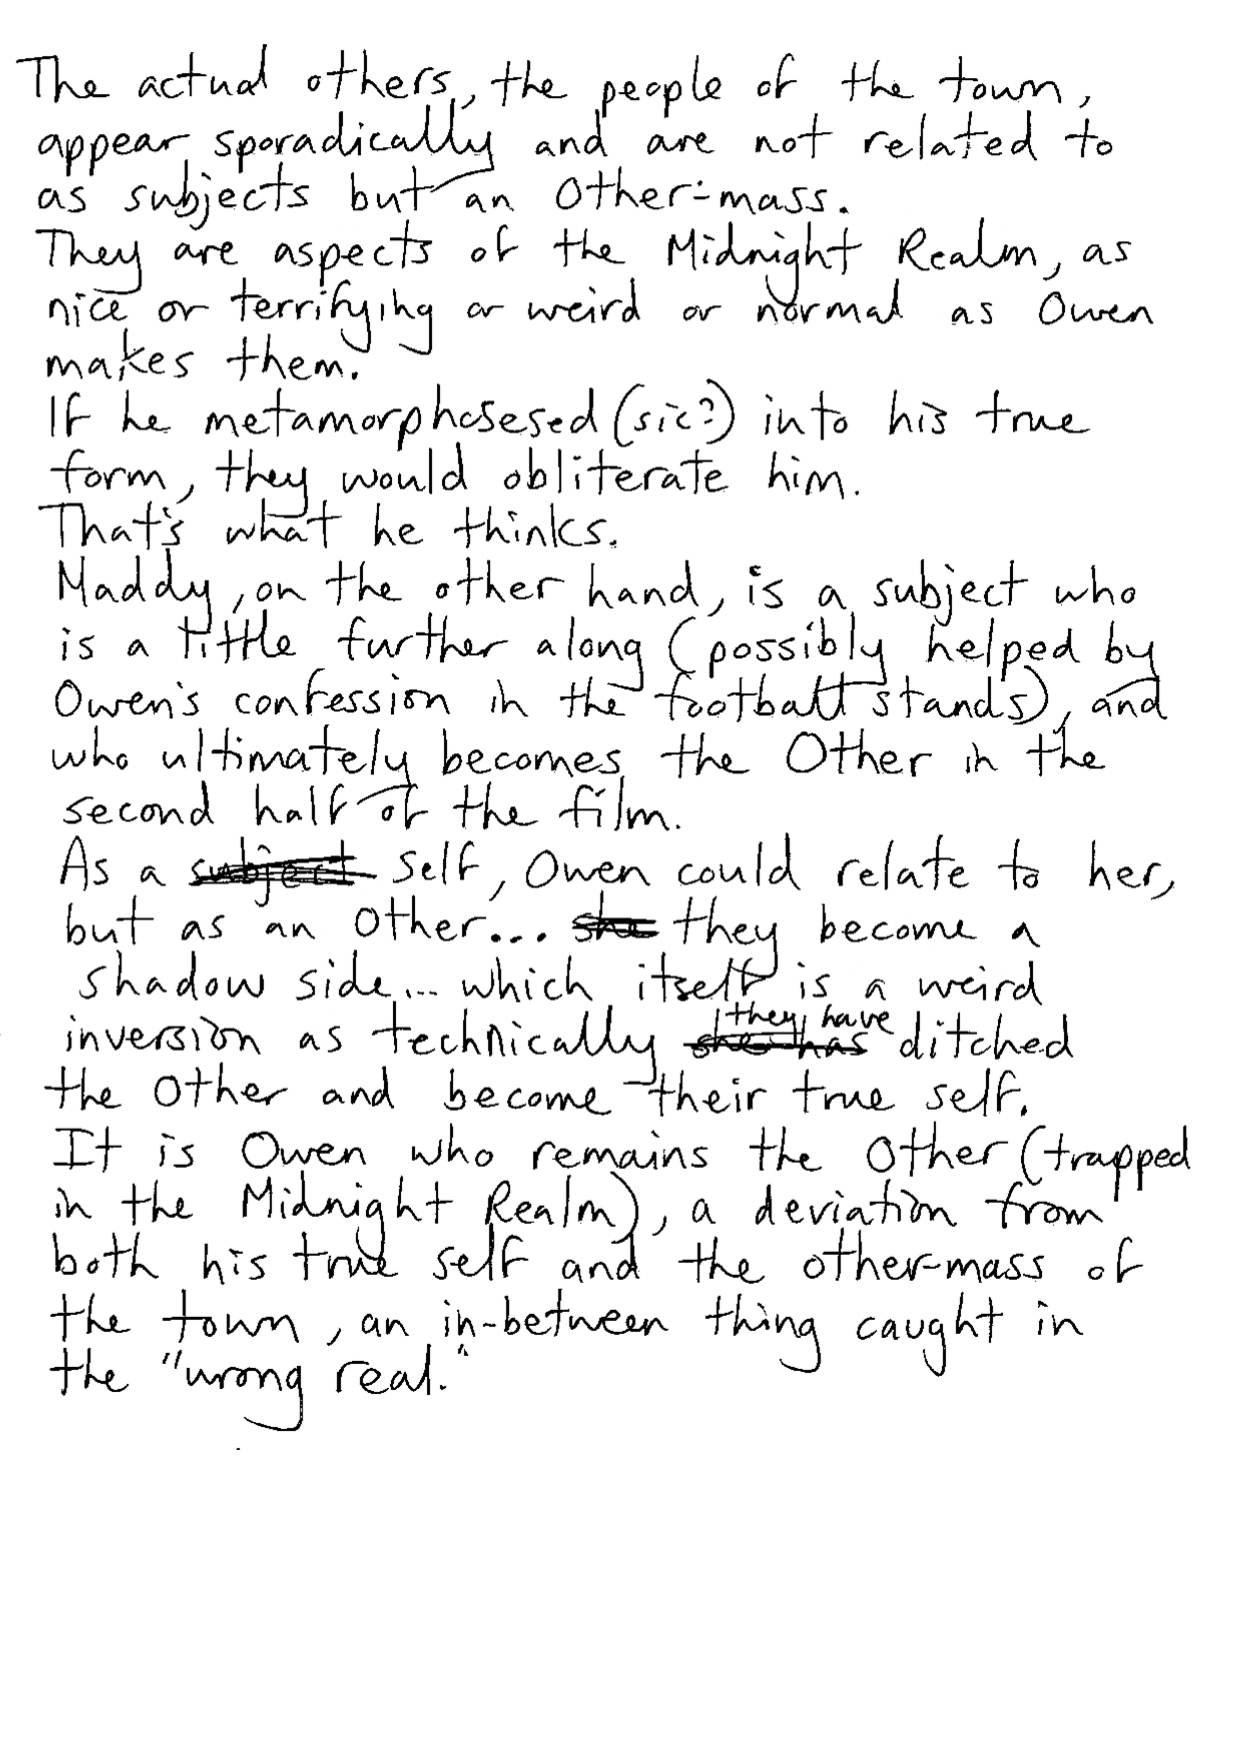 The actual others, the people of the town,
appear sporadically and are not related to
as subjects but an Other-mass.
They are aspects of the Midnight Realm, as
nice or terrifying or weird or normal as Owen
makes them.
If he metamorphosesed (sic?) into his true
form, they would obliterate him.
That's what he thinks.
Maddy, on the other hand, is a subject who
is a little further along (possibly helped by
Owen's confession in the football stands), and
who ultimately becomes the Other in the
second half of the film.
As a subject self, Owen could relate to her,
but as an Other... she they become a
shadow side... which itself is a weird
inversion as technically she has they have ditched
the Other and become their true self.
It is Owen who remains the Other (trapped
in the Midnight Realm), a deviation from
both his true self and the other-mass of
the town, an in-between thing caught in
the "wrong real."